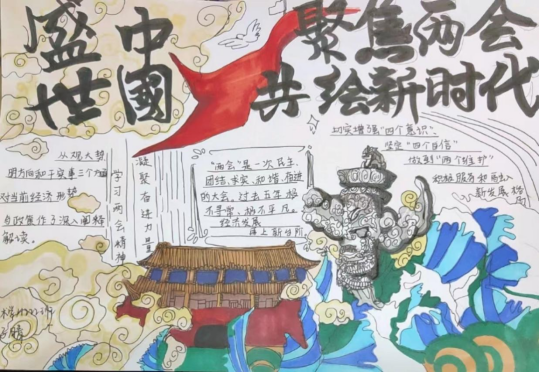 盛世
中國
聚焦两会
共绘新时代
从观大势
明方向和干实事三个方面
对当前经济形势
与政策作了深入阐释
解读。
学习两会精神
凝聚奋进力量
"两会"是一次民主、
团结、求实、和谐、奋进
的大会。过去五年极
不寻常、极不平凡。
经济发展
再上新台阶
切实增强"四个意识"、
坚定"四个自信"
做到"两个维护"
积极服务和融入
新发展格局